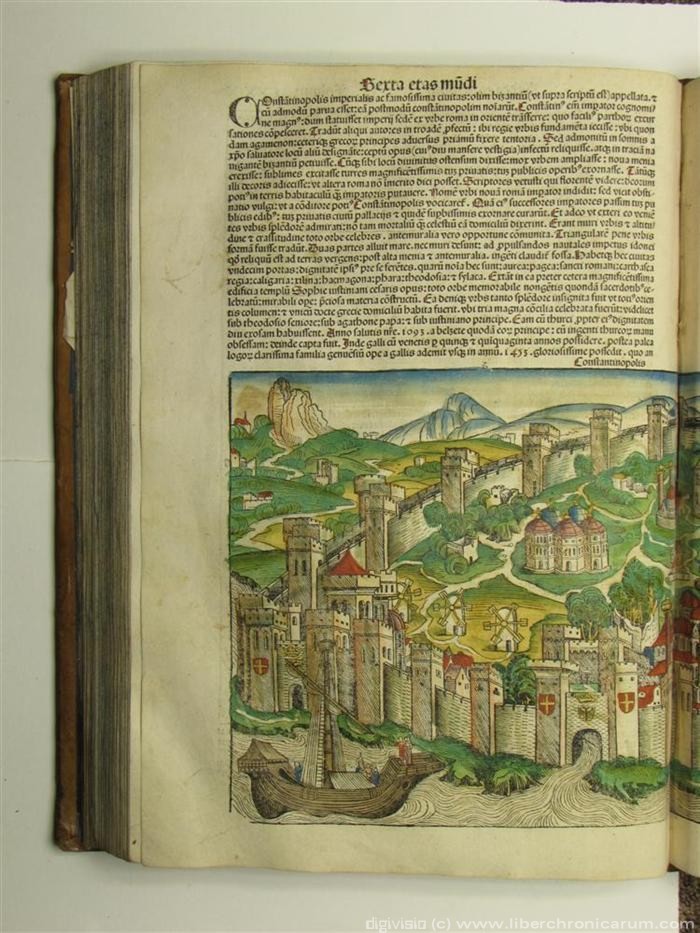 Sexta etas mūdi
COnstātinopolis imperialis ac famosissima ciuitas: olim bizantiū (vt supra scriptū est) appellata. ⁊
cū admodū parua esset: eā postmodū constātinopolim noīarūt. Constātinꝰ em̄ impator cognomī
ne magnꝰ: dum statuisset imperij sedē ex vrbe roma in orientē trāsferre: quo faciliꝰ parthoꝝ excur
sationes cōpesceret. Tradūt aliqui autores in troadē ꝓfectū: ibi regie vrbis fundamēta iecisse: vbi quon
dam agamenon: ceteriqꝫ grecoꝝ principes aduersus priamū fixere tentoria. Sed admonitū in somnis a
xp̄o saluatore locū aliū designāte: ceptū opus (cuiꝰ diu mansere vestigia) infectū reliquisse. atqꝫ in traciā na
vigantē bizantiū petiuisse. Cūqꝫ sibi locū diuinitus ostensum dixisse: mox vrbem ampliasse: noua menia
erexisse: sublimes excitasse turres magnificētissimis tū priuatis: tū publicis operibꝰ exornasse. Tātūqꝫ
illi decoris adiecisse: vt altera roma nō imerito dici posset. Scriptores vetusti qui florentē videre: deorum
potiꝰ in terris habitaculū qꝫ imperatoris putauere. Nomē vrbi nouā romā impator indidit: sed vicit obsti
natio vulgi: vt a cōditore potiꝰ Constātinopolis vocicaret. Quā eiꝰ successores impatores passim tū pu
blicis edibꝰ: tū priuatis ciuiū pallacijs ⁊ quidē supbissimis exornare curarūt. Et adeo vt exteri eo veniē
tes vrbis splēdorē admirati: nō tam mortaliū qꝫ celestiū eā domiciliū dixerint. Erant muri vrbis ⁊ altitu
dine ⁊ crassitudine toto orbe celebres. antemuralia vero opportune cōmunita. Triangularē pene vrbis
formā fuisse tradūt. Duas partes alluit mare. nec muri desunt: ad ꝓpulsandos nautales impetus idonei
qd̄ reliquū est ad terras vergens: post alta menia ⁊ antemuralia. ingēti claudit̄ fossa. Habetqꝫ hec ciuitas
vndecim portas: dignitatē ipsiꝰ pre se ferētes. quarū noīa hec sunt: aurea: pagea: sancti romani: carthasea
regia: caligaria: xilina: haemagona: phara: theodosia: ⁊ sylaca. Extāt in ea preter cetera magnificētissima
edificia templū Sophie iustiniani cesaris opus: toto orbe memorabile nongētis quondā sacerdotibꝰ ce-
lebratū: mirabili ope: p̄ciosa materia cōstructū. Ea deniqꝫ vrbs tanto splēdore insignita fuit vt totiꝰ orien
tis columen: ⁊ vnicū docte grecie domiciliū habita fuerit: vbi tria magna cōcilia celebrata fuerūt: videlicet
sub theodosio seniore: sub agathone papa: ⁊ sub iustiniano principe. Eam cū thurci ꝓpter eiꝰ dignitatem
diu exosam habuissent. Anno salutis nr̄e. 1093. a belzete quodā eoꝝ principe: cū ingenti thurcoꝝ manu
obsessam: deinde capta fuit. Inde galli cū venetis p quinqꝫ ⁊ quiquaginta annos possidere. postea palea
logoꝝ clarissima familia genuēsiū ope a gallis ademit vsqꝫ in annū. 1453. gloriosissime possedit. quo an
Constantinopolis
digivisio (c) www.liberchronicarum.com